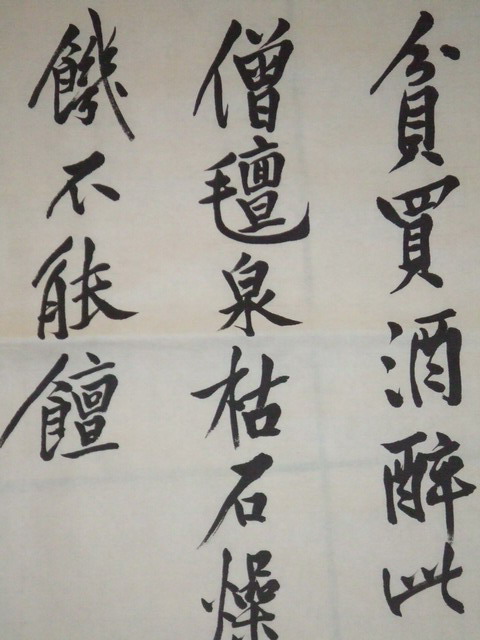 貧買酒醉此
僧氊泉枯石燥
饑不能饘